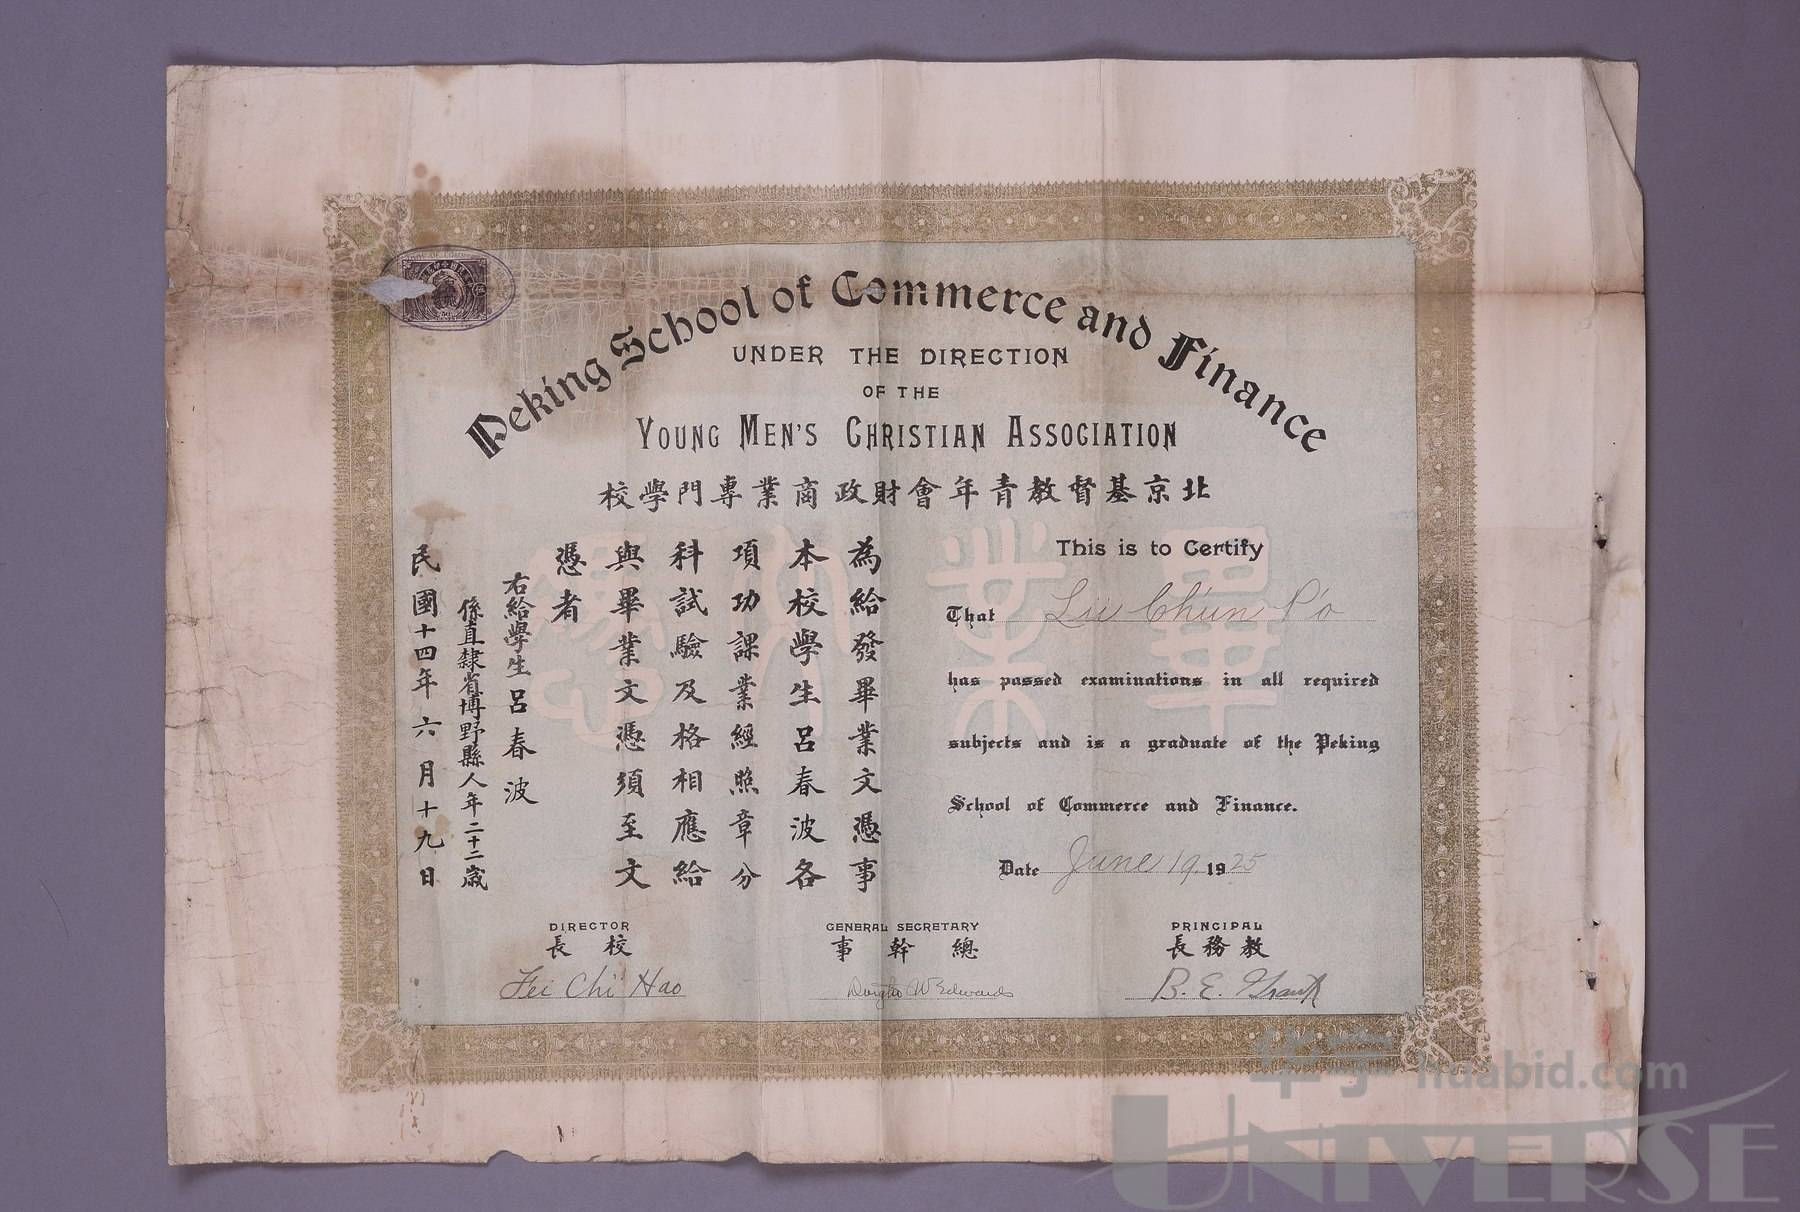 Peking School of Commerce and Finance
UNDER THE DIRECTION
OF THE
YOUNG MEN'S CHRISTIAN ASSOCIATION
北京基督教青年會財政商業專門學校
This is to Certify
That Lü Ch'un P'o
has passed examinations in all required
subjects and is a graduate of the Peking
School of Commerce and Finance.
Date June 19, 1925
畢業文憑
為給發畢業文憑事
本校學生呂春波各
項功課業經照章分
科試驗及格相應給
與畢業文憑須至文
憑者
右給學生呂春波
係直隸省博野縣人年二十二歲
民國十四年六月十九日
DIRECTOR
校長
Fei Chi Hao
GENERAL SECRETARY
總幹事
Dwight W Edwards
PRINCIPAL
教務長
B. E.
华宇 huabid.com
UNIVERSE